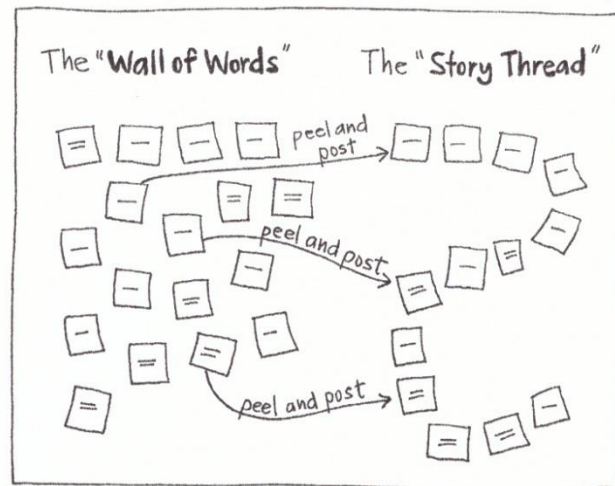 The "Wall of Words"
The "Story Thread"
peel and
post
peel and post
peel and post